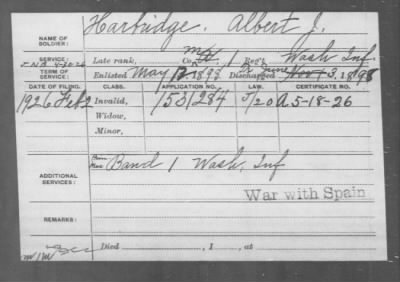 NAME OF SOLDIER: Harbridge. Albert J.
SERVICE: Late rank, Co. M 1 Reg't Wash Inf.
TERM OF SERVICE: Enlisted May 12 1898 Discharged Nov 1 3, 1898
DATE OF FILING. CLASS. APPLICATION NO. LAW. CERTIFICATE NO.
1926 Feb 2 Invalid, 1531284 5/20 A 5-18-26
Widow,
Minor,
ADDITIONAL SERVICES: Band 1 Wash, Inf
War with Spain
REMARKS:
Died , 1 , at